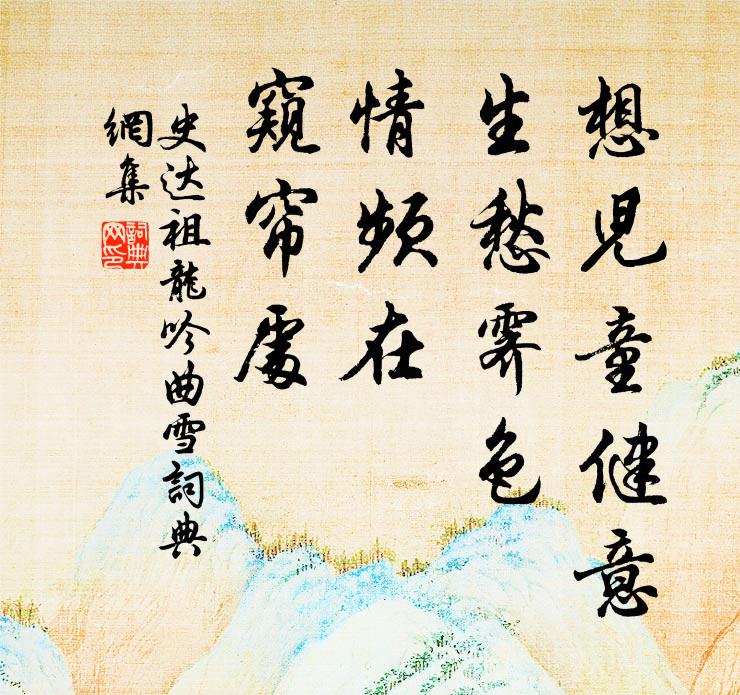 想児童健意
生愁霽色
情频在
窺帘處
史达祖龍吟曲雪詞典
網集
詞典
网印